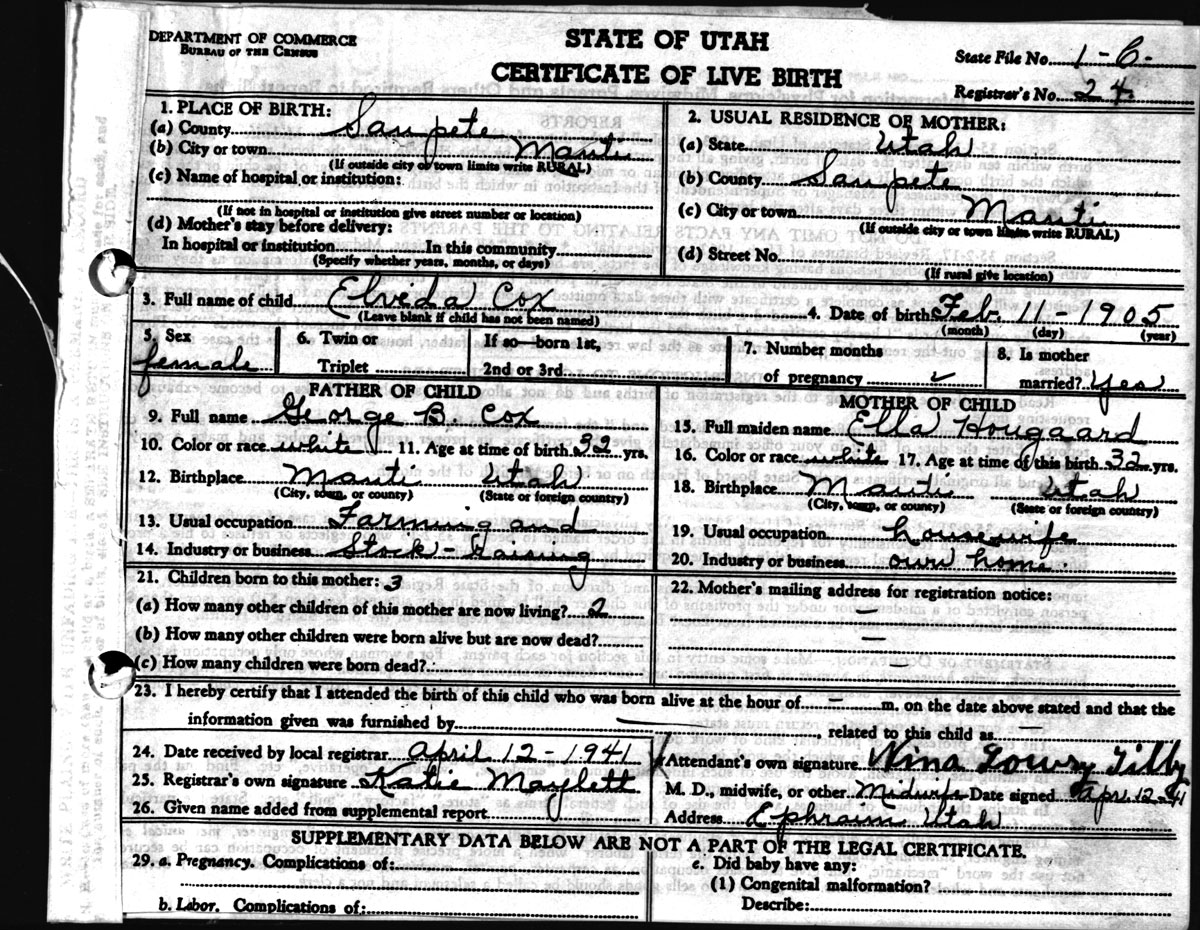 DEPARTMENT OF COMMERCE
BUREAU OF THE CENSUS
STATE OF UTAH
CERTIFICATE OF LIVE BIRTH
State File No. 1-C-
Registrar's No. 24
1. PLACE OF BIRTH:
(a) County Sanpete
(b) City or town Manti
(If outside city or town limits write RURAL)
(c) Name of hospital or institution:
(If not in hospital or institution give street number or location)
(d) Mother's stay before delivery:
In hospital or institution In this community
(Specify whether years, months, or days)
2. USUAL RESIDENCE OF MOTHER:
(a) State Utah
(b) County Sanpete
(c) City or town Manti
(If outside city or town limits write RURAL)
(d) Street No.
(If rural give location)
3. Full name of child Elveda Cox 4. Date of birth Feb. 11-1905
(Leave blank if child has not been named) (month) (day) (year)
5. Sex female
6. Twin or Triplet
If so—born 1st, 2nd or 3rd
7. Number months of pregnancy ✓
8. Is mother married? Yes
FATHER OF CHILD
9. Full name George B. Cox
10. Color or race white 11. Age at time of birth 32 yrs.
12. Birthplace Manti Utah
(City, town, or county) (State or foreign country)
13. Usual occupation Farming and
14. Industry or business Stock-Raising
MOTHER OF CHILD
15. Full maiden name Ella Hougaard
16. Color or race white 17. Age at time of this birth 32 yrs.
18. Birthplace Manti Utah
(City, town, or county) (State or foreign country)
19. Usual occupation housewife
20. Industry or business own home.
21. Children born to this mother: 3
(a) How many other children of this mother are now living? 2
(b) How many other children were born alive but are now dead?
(c) How many children were born dead?
22. Mother's mailing address for registration notice:
—
—
23. I hereby certify that I attended the birth of this child who was born alive at the hour of — m, on the date above stated and that the
information given was furnished by —, related to this child as —
24. Date received by local registrar April 12-1941
25. Registrar's own signature Katie Maylett
26. Given name added from supplemental report
Attendant's own signature Nina Lowry Tilby
M. D., midwife, or other Midwife Date signed Apr. 12-41
Address Ephraim Utah
SUPPLEMENTARY DATA BELOW ARE NOT A PART OF THE LEGAL CERTIFICATE.
29. a. Pregnancy. Complications of:
b. Labor. Complications of:
c. Did baby have any:
(1) Congenital malformation?
Describe: